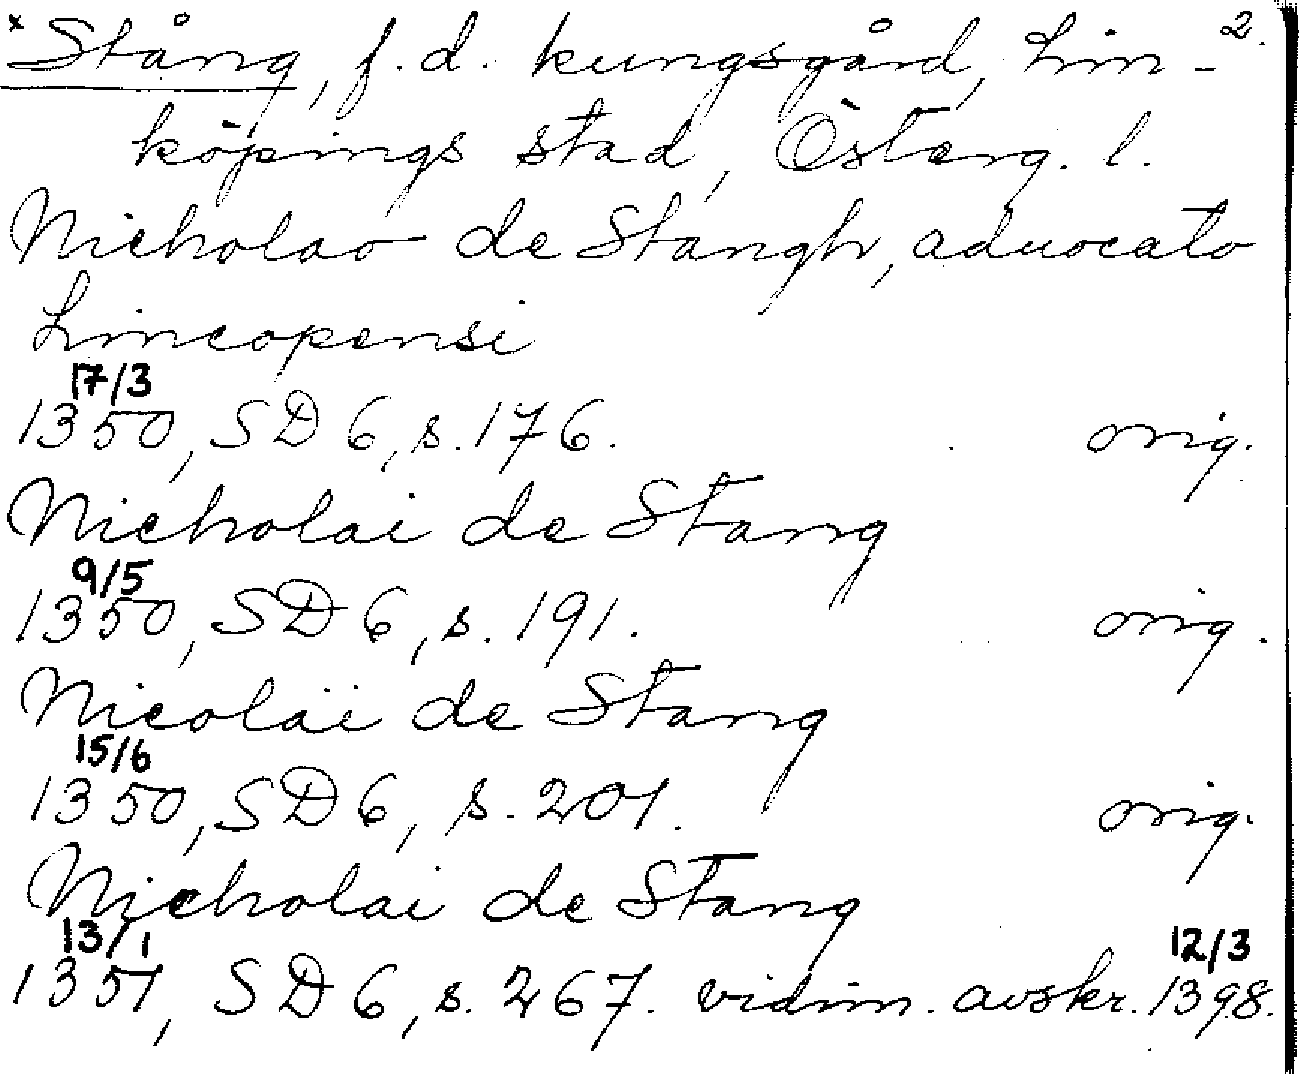 x Stång, f.d. kungsgård, Lin- 2.
köpings stad, Österg. l.
Nicholao de Stangh, aduocato
Lincopensi
17/3
1350, SD 6, s. 176. orig.
Nicholai de Stang
9/5
1350, SD 6, s. 191. orig.
Nicolai de Stang
15/6
1350, SD 6, s. 201. orig.
Nicholai de Stang
13/1 12/3
1351, SD 6, s. 267. vidim. avskr. 1398.